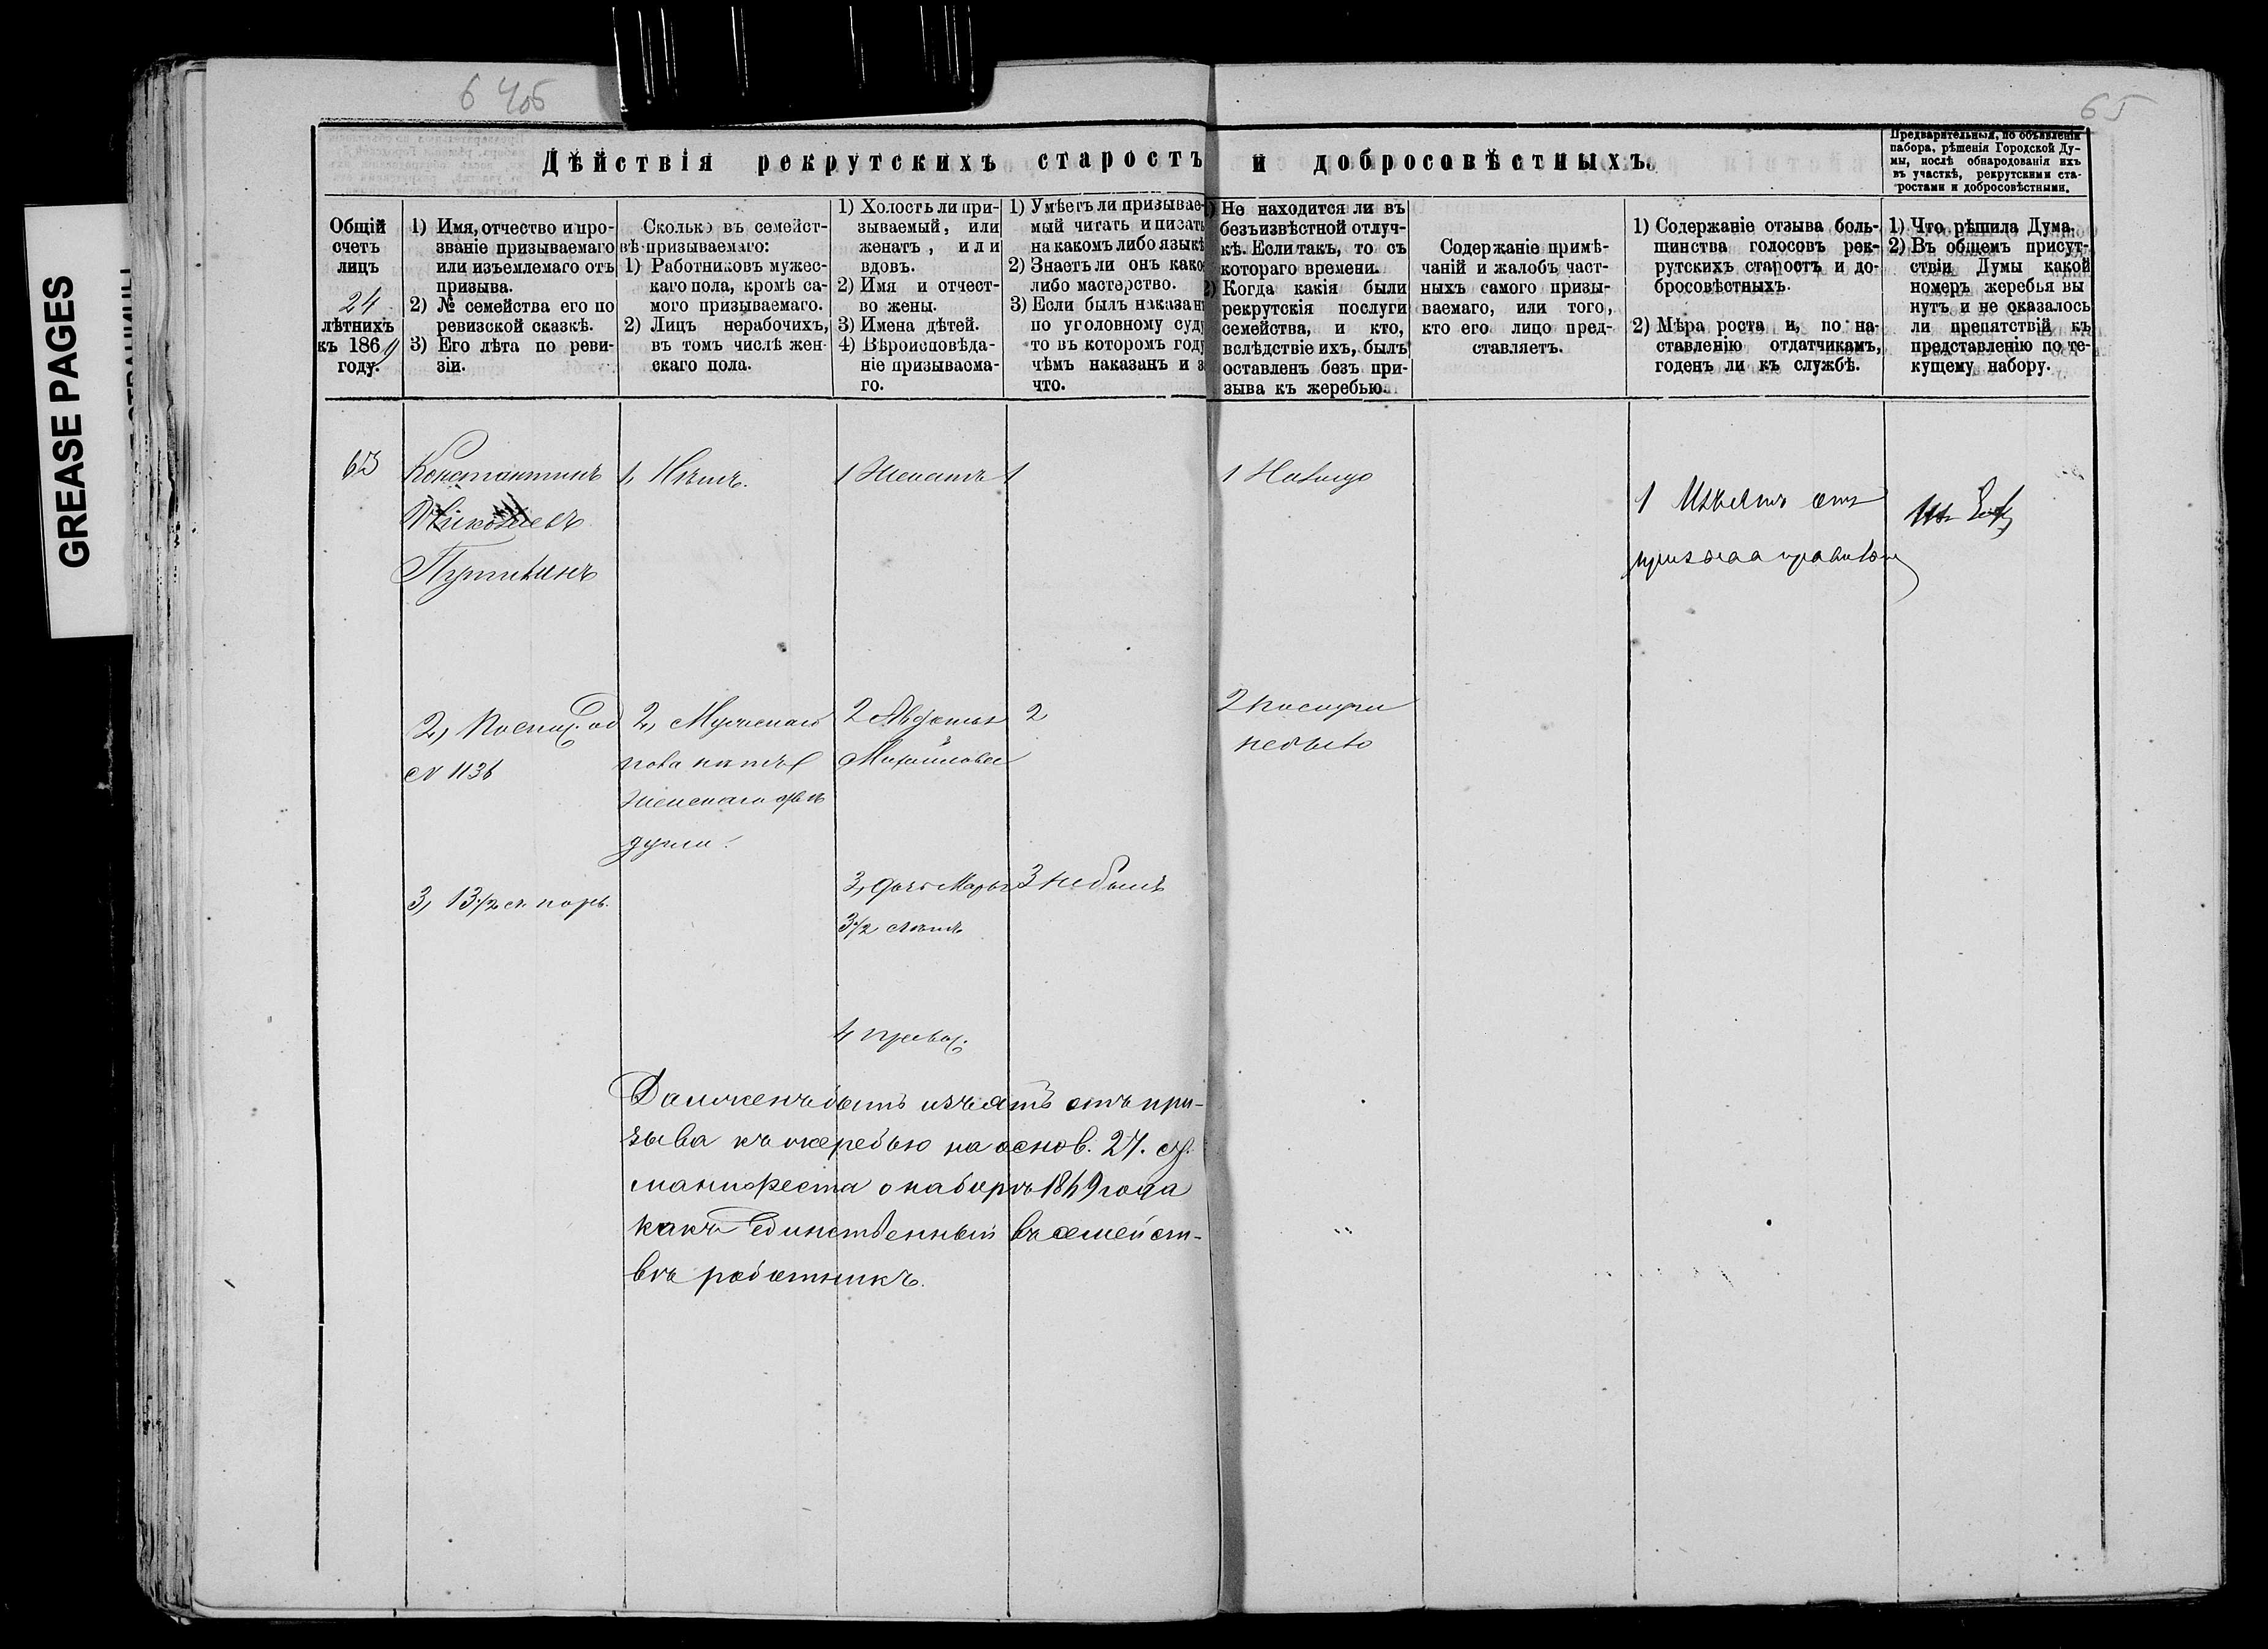 6 4об
65
GREASE PAGES
Дѣйствія рекрутскихъ старостъ и добросовѣстныхъ.
Предварительныя, по объявленіи
набора, рѣшенія Городской Ду-
мы, послѣ обнародованія ихъ
въ участкѣ, рекрутскими ста-
ростами и добросовѣстными.
Общій
счетъ
лицъ
24
лѣтнихъ
къ 1869
году.
1) Имя, отчество и про-
званіе призываемаго
или изъемлемаго отъ
призыва.
2) № семейства его по
ревизской сказкѣ.
3) Его лѣта по реви-
зіи.
Сколько въ семейст-
вѣ призываемаго:
1) Работниковъ мужес-
каго пола, кромѣ са-
мого призываемаго.
2) Лицъ нерабочихъ,
въ томъ числѣ жен-
скаго пола.
1) Холостъ ли при-
зываемый, или
женатъ, или
вдовъ.
2) Имя и отчест-
во жены.
3) Имена дѣтей.
4) Вѣроисповѣда-
ніе призываема-
го.
1) Умѣетъ ли призывае-
мый читать и писать
на какомъ либо языкѣ
2) Знаетъ ли онъ како
либо мастерство.
3) Если былъ наказан
по уголовному суду
то въ которомъ году
чѣмъ наказанъ и з
что.
1) Не находится ли въ
безъизвѣстной отлуч-
кѣ. Если такъ, то съ
котораго времени.
2) Когда какія были
рекрутскія послуги
семейства, и кто,
вслѣдствіе ихъ, былъ
оставленъ безъ при-
зыва къ жеребью.
Содержаніе примѣ-
чаній и жалобъ част-
ныхъ самого призы-
ваемаго, или того,
кто его лицо пред-
ставляетъ.
1) Содержаніе отзыва боль-
шинства голосовъ рек-
рутскихъ старостъ и до-
бросовѣстныхъ.
2) Мѣра роста и, по на-
ставленію отдатчикамъ,
годенъ ли къ службѣ.
1) Что рѣшила Дума.
2) Въ общемъ присут-
ствіи Думы какой
номеръ жеребья вы
нутъ и не оказалось
ли препятствій къ
представленію по те-
кущему набору.
63
Константинъ
Николаевъ
1, Нѣтъ.
1 Женатъ
1
1 Налицо
1 Изъятъ отъ
призыва
2,
№ 1136
2, Мужскаго
пола пять
Женскаго двѣ
души.
2 Авдотья
Михайловна
2
2 послуги
небыло
3, 13 1/2
3, дочь Марья
3 1/2 лѣтъ
3 не былъ
4 правос.
Долженъ быть изъятъ отъ при-
зыва къ жеребью на основ. 27. ст.
манифеста о наборѣ 1869 года
какъ единственный въ семейст-
вѣ работникъ.